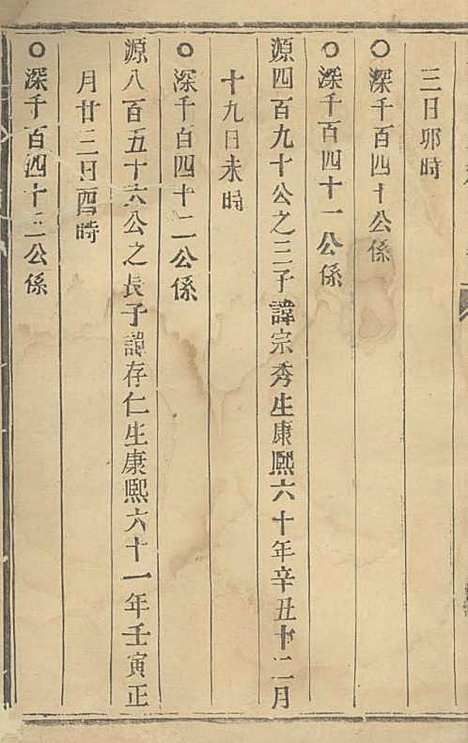 三日卯時
○深千百四十公係
○深千百四十一公係
源四百九十公之三子諱宗秀生康熙六十年辛丑十二月
十九日未時
○深千百四十二公係
源八百五十六公之長子諱存仁生康熙六十一年壬寅正
月廿三日酉時
○深千百四十三公係